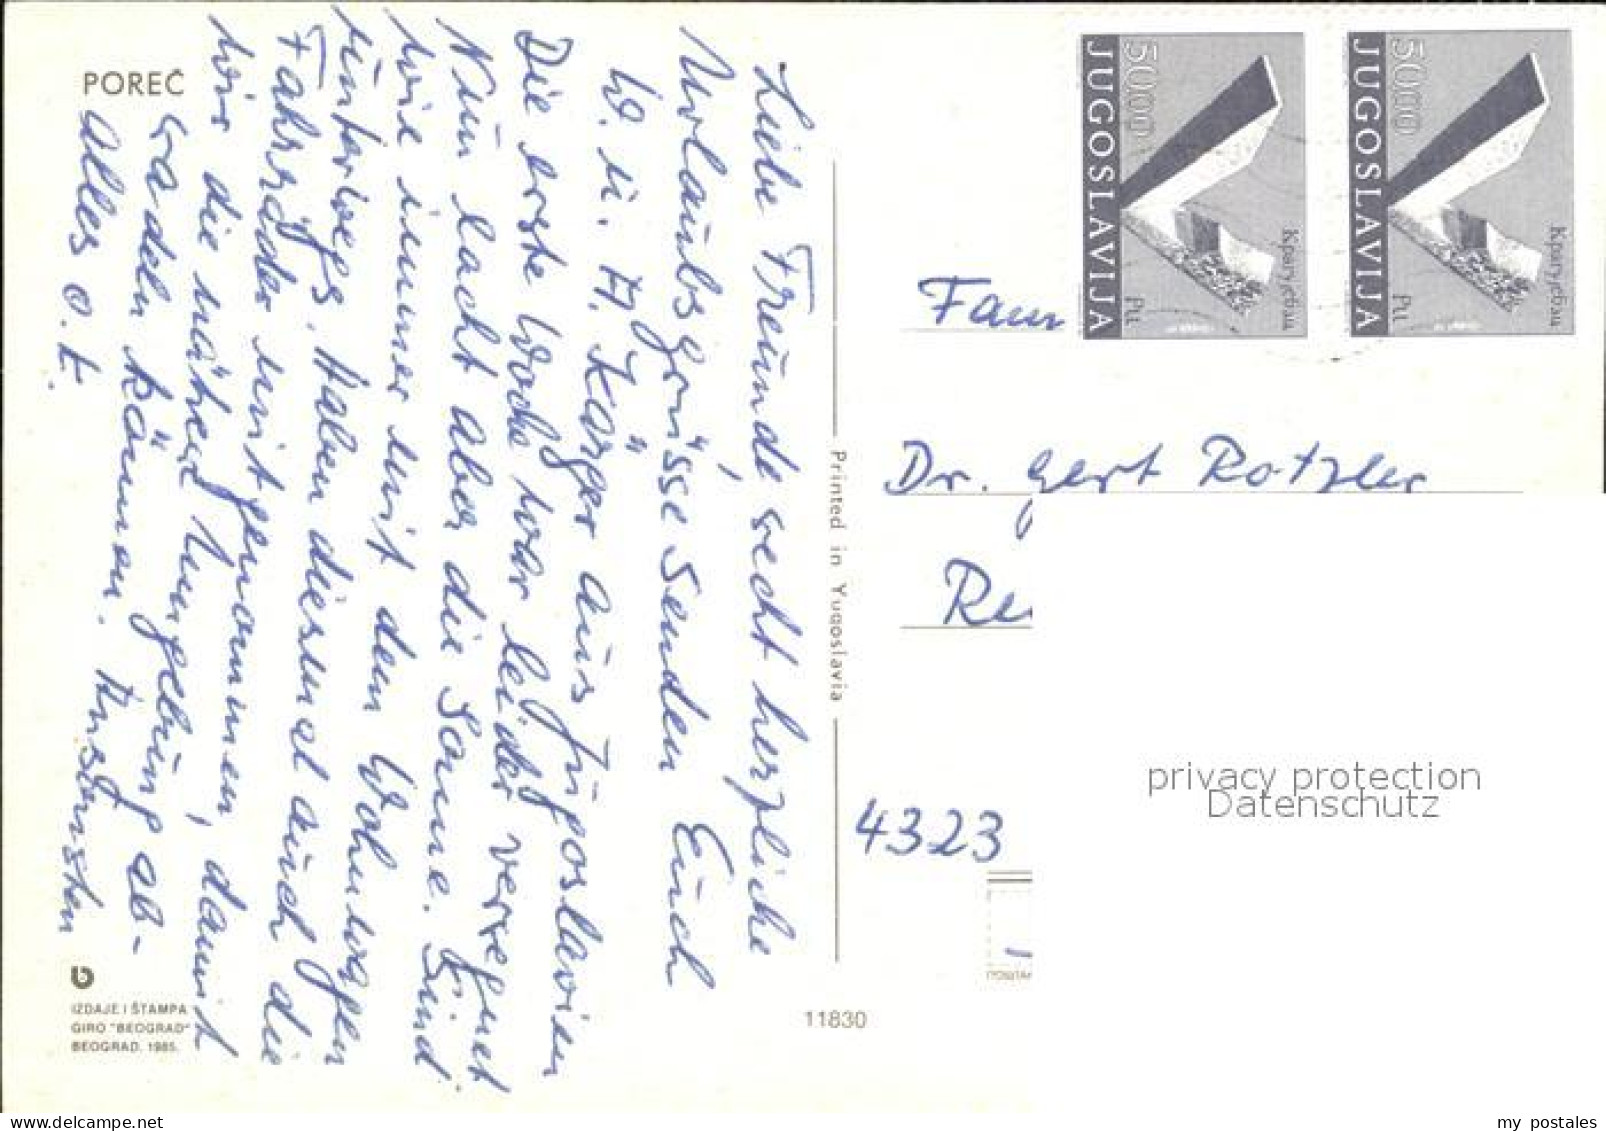 POREČ
Liebe Freunde, recht herzliche
Urlaubsgrüsse senden Euch
W. u. A. Karger aus Jugoslavien
Die erste Woche war leider verregnet
Nun lacht aber die Sonne. Sind
wie immer mit dem Wohnwagen
unterwegs. Haben diesmal auch die
Fahrräder mitgenommen, damit
wir die nähere Umgebung ab-
radeln können. Ansonsten
alles o.k.
IZDAJE I ŠTAMPA
GIRO "BEOGRAD"
BEOGRAD, 1985.
Printed in Yugoslavia
11830
JUGOSLAVIJA
50.00
Крагујевац
JUGOSLAVIJA
50.00
Крагујевац
Fam
Dr. Gert Rotzler
Re
4323
privacy protection
Datenschutz
my postales